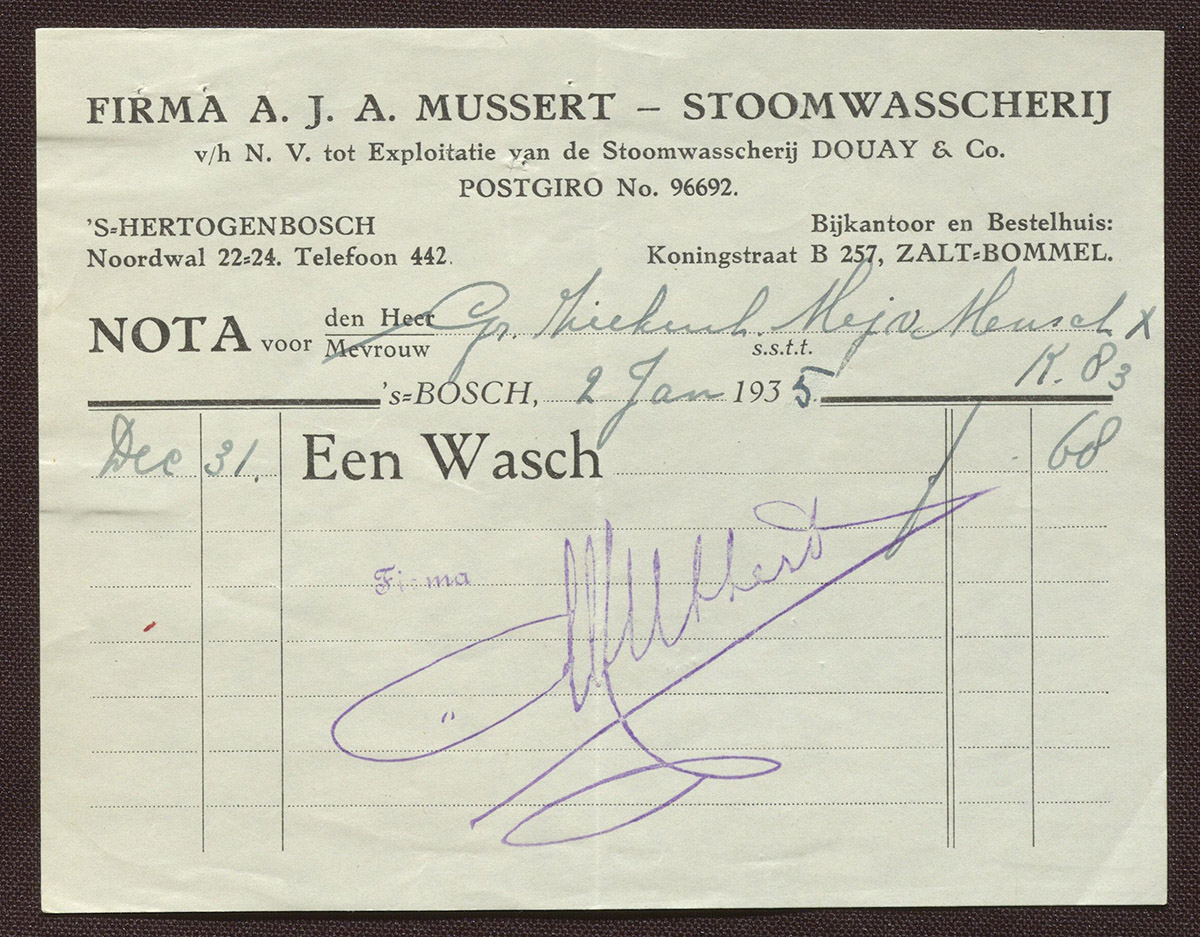 FIRMA A. J. A. MUSSERT – STOOMWASSCHERIJ
v/h N. V. tot Exploitatie van de Stoomwasscherij DOUAY & Co.
POSTGIRO No. 96692.
'S=HERTOGENBOSCH
Noordwal 22=24. Telefoon 442.
Bijkantoor en Bestelhuis:
Koningstraat B 257, ZALT=BOMMEL.
NOTA voor den Heer Mevrouw Gr. Mej v Meusel X
s.s.t.t.
K. 83
's=BOSCH, 2 Jan 1935.
Dec 31. Een Wasch 68
Firma
Mussert